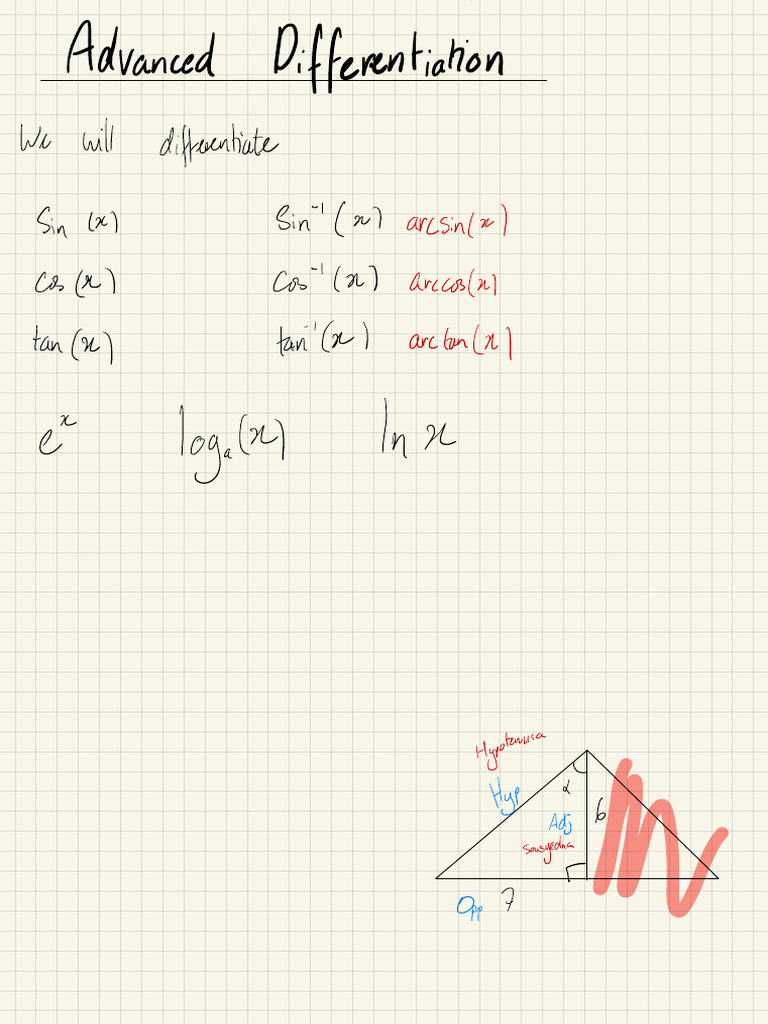 Advanced Differentiation
We will differentiate
Sin (x) Sin⁻¹(x) arcsin(x)
cos(x) Cos⁻¹(x) arccos(x)
tan(x) tan⁻¹(x) arctan(x)
eˣ logₐ(x) ln x
Hypotenusa
Hyp α
Adj 6
sousyedna
Opp 7